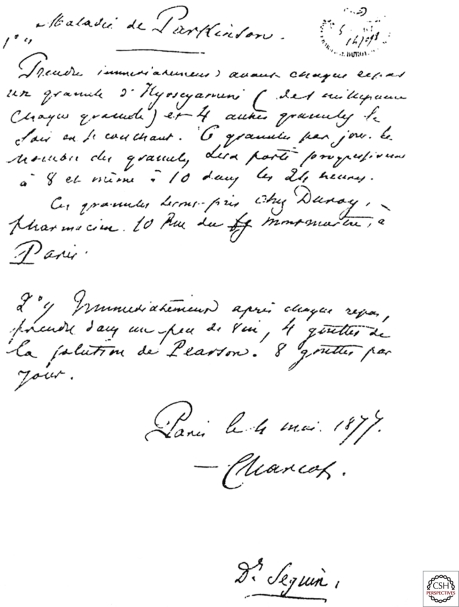 Maladie de Parkinson.
1°
Prendre immédiatement avant chaque repas
un granule d'Hyosciamine ( milligramme
chaque granule) et 4 autres granules le
soir en se couchant. 6 granules par jour. Le
nombre des granules sera porté progressivement
à 8 et même à 10 dans les 24 heures.
Ces granules seront pris chez Duroy,
pharmacien. 10 Rue du fg Montmartre, à
Paris.
2° Immédiatement après chaque repas,
prendre dans un peu de vin, 4 gouttes de
la solution de Pearson. 8 gouttes par
jour.
Paris le 4 mai. 1877.
— Charcot.
Dr. Seguin.
CSH
PERSPECTIVES